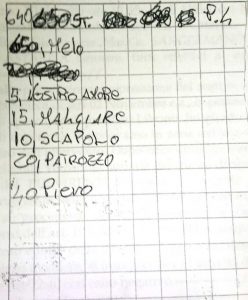 640 650 ST. P.4
650, Melo
5, NESTRO AMORE
15, MANGIARE
10, SCAPOLO
20, PATROZZO
40 Piero